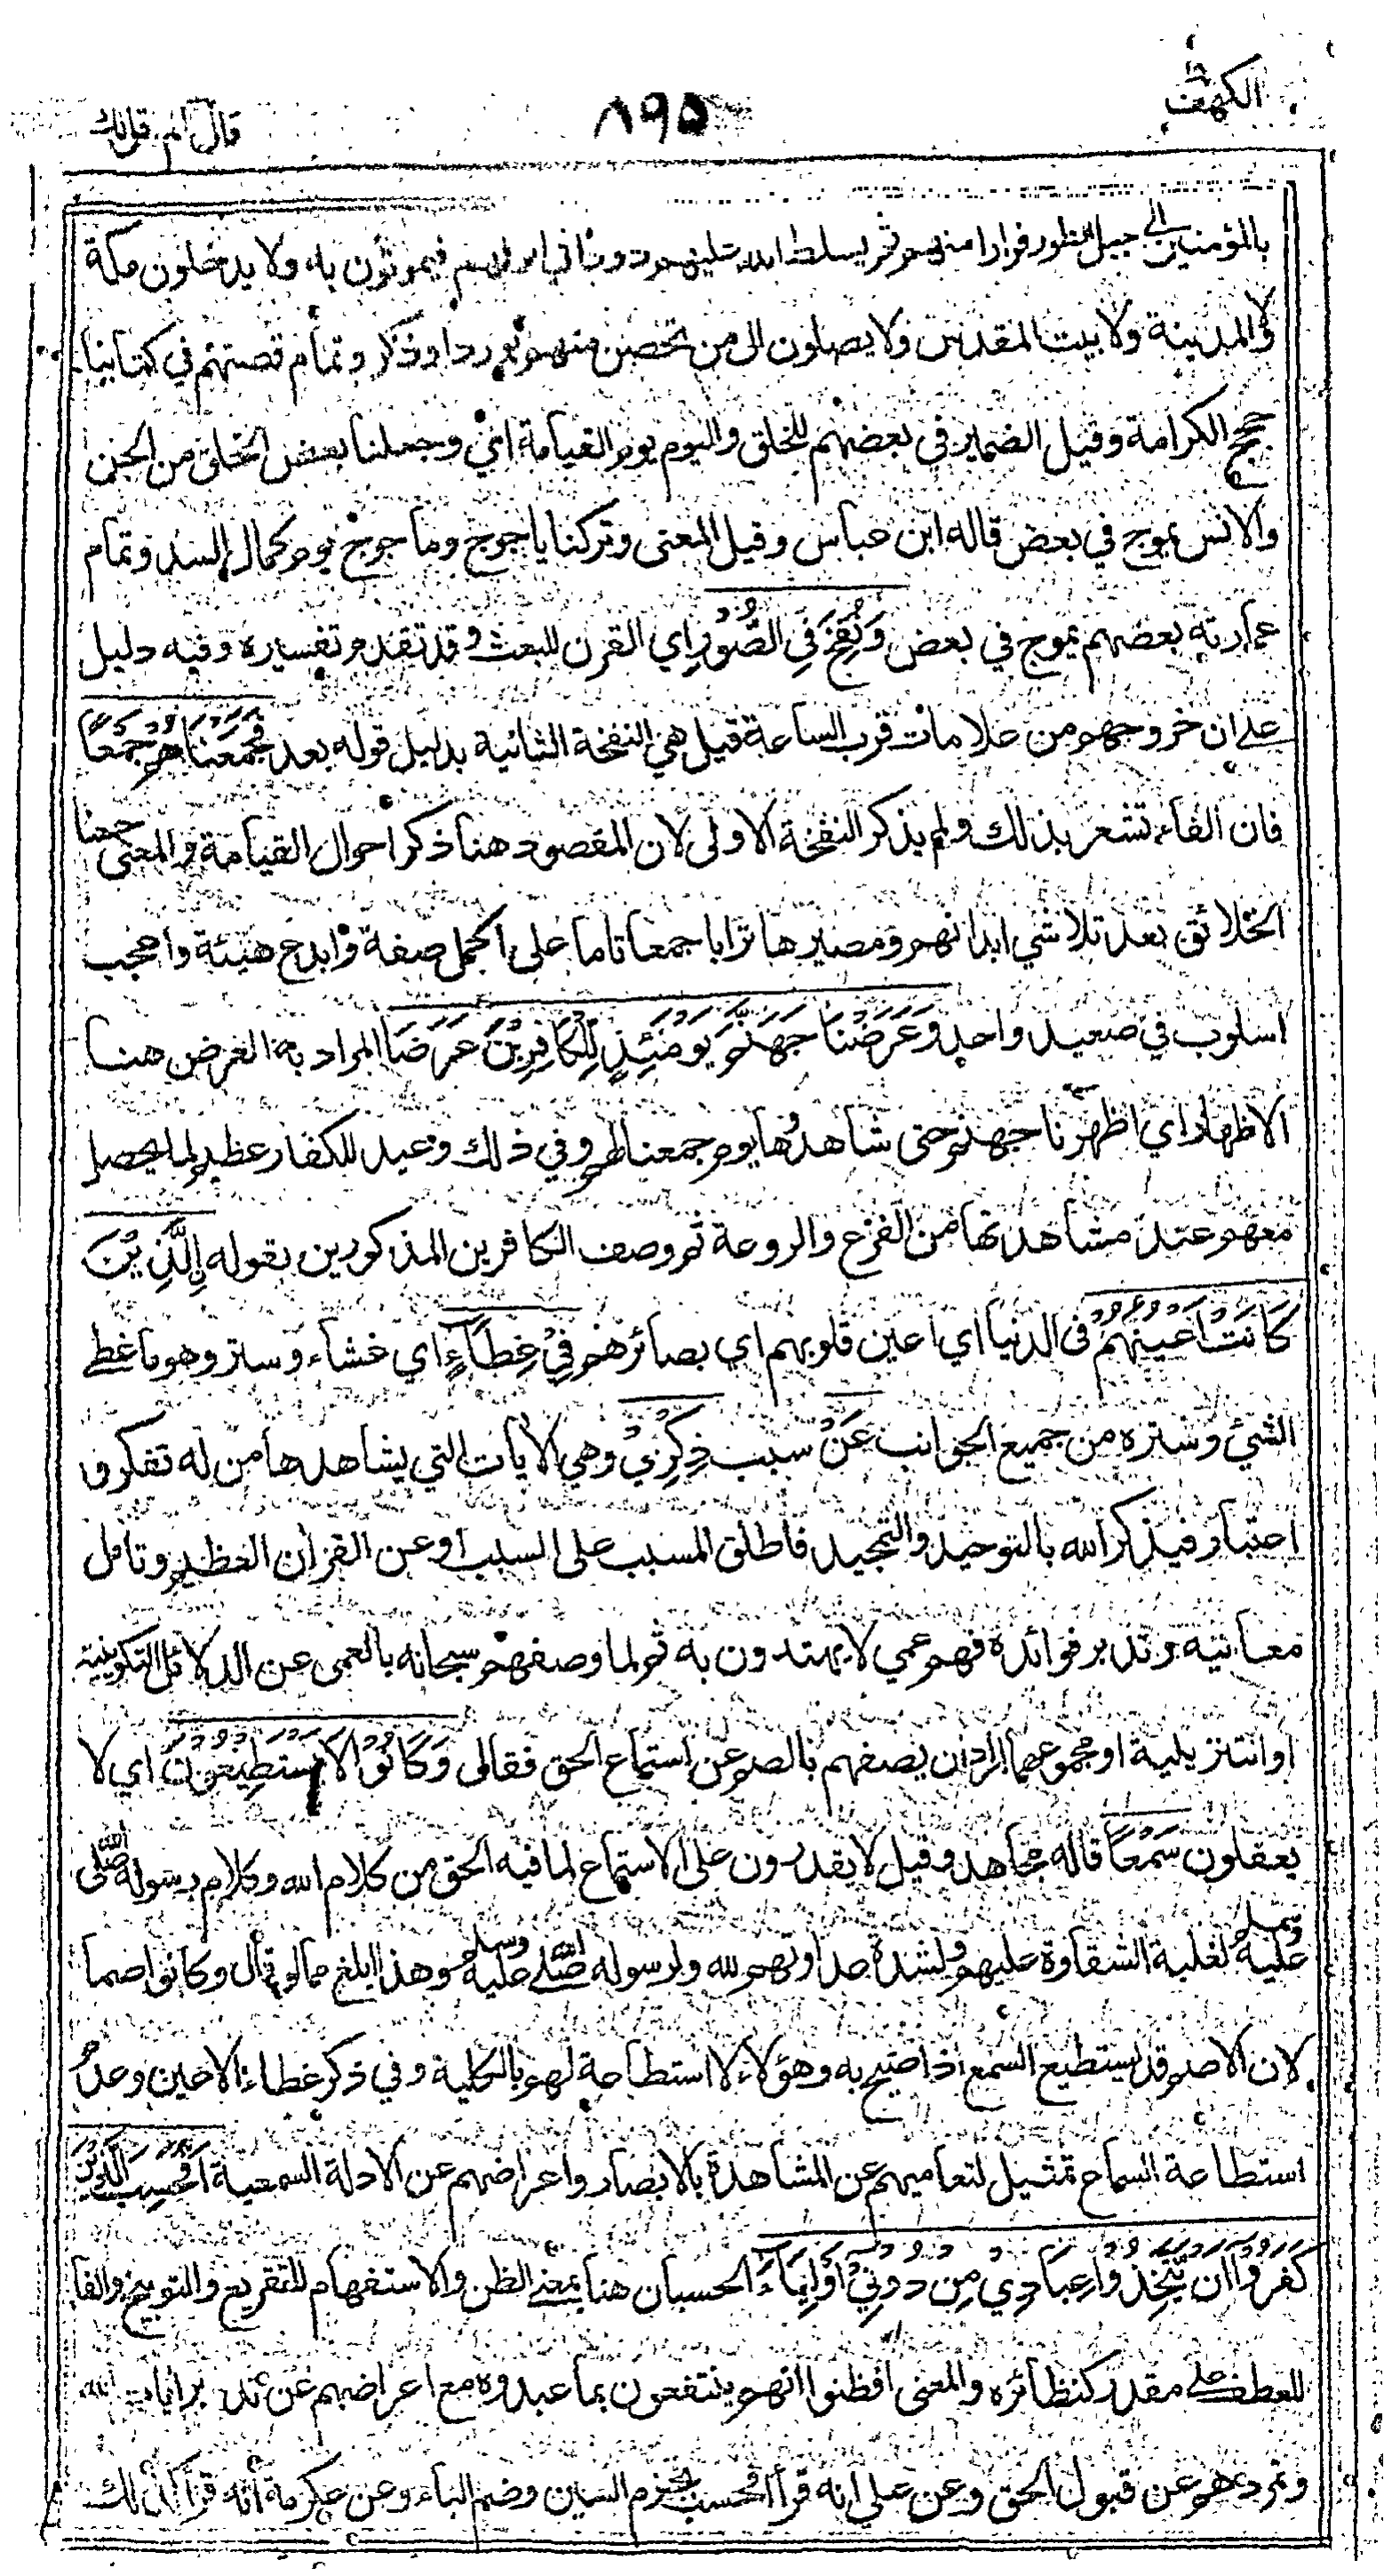 الكهف ١٨
٨٩٥
قال الم اقل لك
بالمؤمنين الى جبل الطور فرارا منهم ثم يسلط الله عليهم دودا في انوفهم فيموتون به ولا يدخلون مكة
ولا المدينة ولا بيت المقدس ولا يصلون الى من تحصن منهم بورد او ذكر وتمام قصتهم في كتابنا
حجج الكرامة وقيل الضمير في بعضهم للخلق واليوم يوم القيامة اي وجعلنا بعض الخلق من الجن
والانس يموج في بعض قاله ابن عباس وقيل المعنى وتركنا ياجوج وماجوج يوم كمال السد وتمام
عمارته بعضهم يموج في بعض وَنُفِخَ فِي الصُّورِ اي القرن للبعث وقد تقدم تفسيره وفيه دليل
على ان خروجهم من علامات قرب الساعة قيل هي النفخة الثانية بدليل قوله بعد فَجَمَعْنَاهُمْ جَمْعًا
فان الفاء تشعر بذلك ولم يذكر النفخة الاولى لان المقصود هنا ذكر احوال القيامة والمعنى جمعنا
الخلائق بعد تلاشي ابدانهم ومصيرها ترابا جمعا تاما على اكمل صفة وابدع هيئة واعجب
اسلوب في صعيد واحد وَعَرَضْنَا جَهَنَّمَ يَوْمَئِذٍ لِّلْكَافِرِيْنَ عَرْضًا المراد به العرض هنا
الاظهار اي اظهرنا جهنم حتى شاهدوها يوم جمعنا لهم وفي ذلك وعيد للكفار عظيم لما يحصل
معهم عند مشاهدتها من الفزع والروعة ثم وصف الكافرين المذكورين بقوله اِلَّذِيْنَ
كَانَتْ اَعْيُنُهُمْ في الدنيا اي اعين قلوبهم اي بصائرهم فِيْ غِطَآءٍ اي غشاء وستر وهو ما غطى
الشيء وستره من جميع الجوانب عَنْ سبب ذِكْرِيْ وهي الايات التي يشاهدها من له تفكر و
اعتبار فيذكر الله بالتوحيد والتمجيد فاطلق المسبب على السبب او عن القران العظيم وتامل
معانيه وتدبر فوائده فهم عمي لا يهتدون به ثم لما وصفهم سبحانه بالعمى عن الدلائل التكوينية
او التنزيلية او مجموعهما اراد ان يصفهم بالصم عن استماع الحق فقال وَكَانُوْا لَا يَسْتَطِيْعُوْنَ اي لا
يعقلون سَمْعًا قاله مجاهد وقيل لا يقدرون على الاستماع لما فيه الحق من كلام الله وكلام رسوله صلى الله
عليه وسلم لغلبة الشقاوة عليهم ولشدة عداوتهم لله ولرسوله صلى الله عليه وسلم وهذا ابلغ مما لو قال وكانوا صما
لان الاصم قد يستطيع السمع اذا صيح به وهؤلاء لا استطاعة لهم بالكلية وفي ذكر غطاء الاعين وعدم
استطاعة السماع تمثيل لتعاميهم عن المشاهدة بالابصار واعراضهم عن الادلة السمعية اَفَحَسِبَ الَّذِيْنَ
كَفَرُوْا اَنْ يَّتَّخِذُوْا عِبَادِيْ مِنْ دُوْنِيْ اَوْلِيَآءَ الحسبان هنا بمعنى الظن والاستفهام للتقريع والتوبيخ والفا
للعطف على مقدر كنظائره والمعنى افظنوا انهم ينتفعون بما عبدوه مع اعراضهم عن تدبر ايات الله
وتمردهم عن قبول الحق وعن علي انه قرأ افحسب بجزم السين وضم الباء وعن عكرمة انه قرأ كذلك